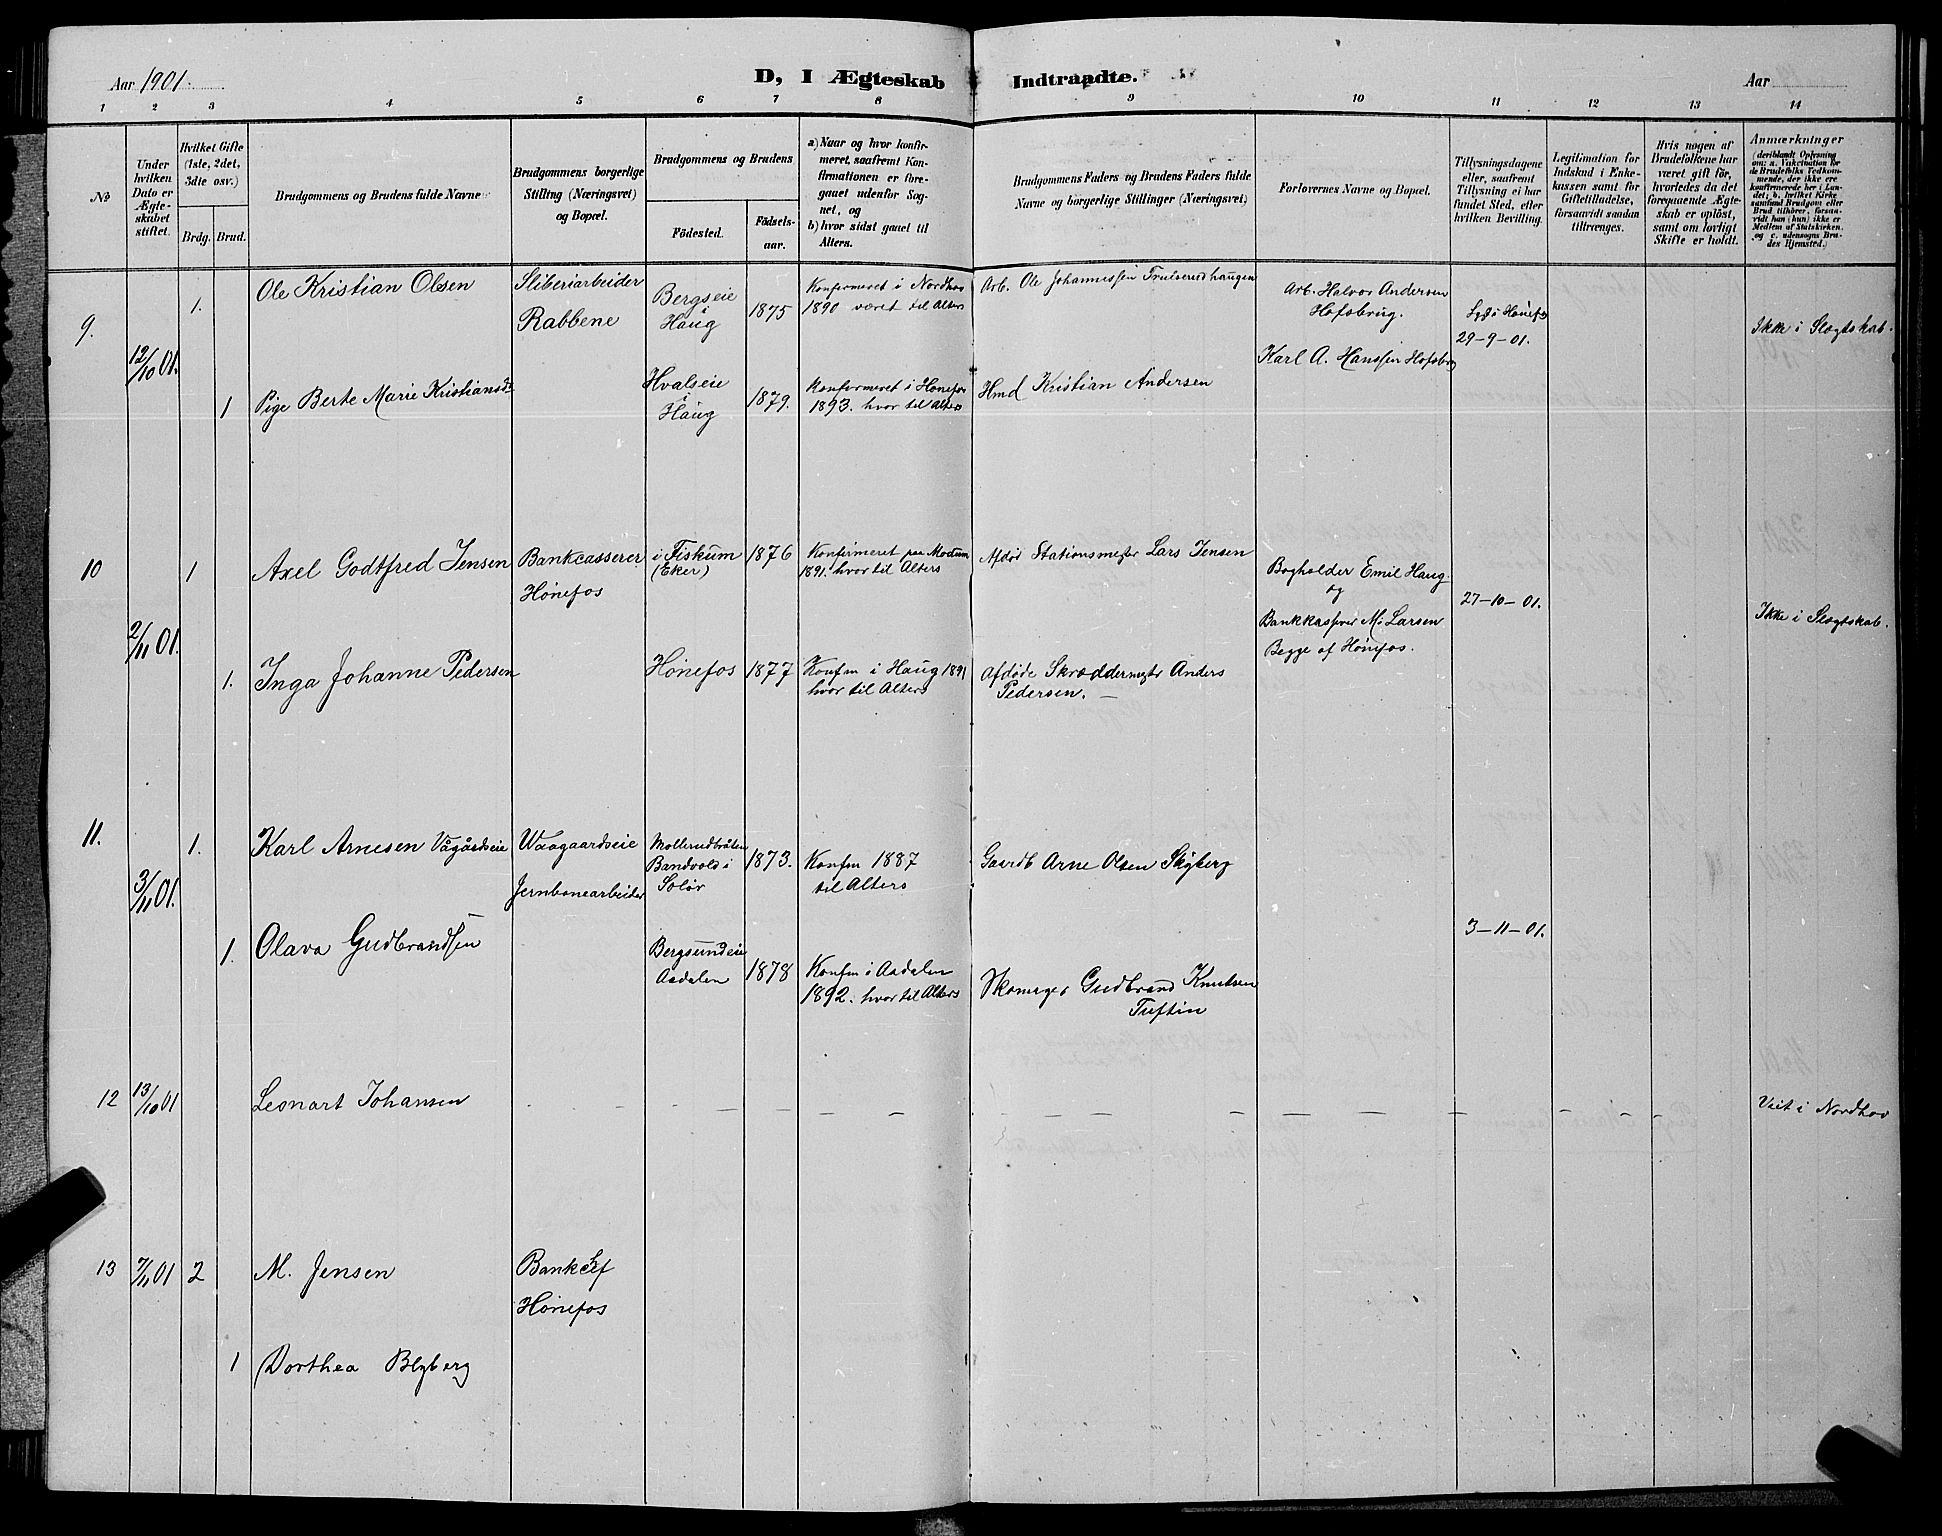 Aar 1901.
D, I Ægteskab Indtraadte.
Aar
1 2 3 4 5 6 7 8 9 10 11 12 13 14
No
Under hvilken Dato er Ægteskabet stiftet.
Hvilket Gifte (1ste, 2det, 3dte osv.)
Brdg. Brud.
Brudgommens og Brudens fulde Navne
Brudgommens borgerlige Stilling (Næringsvei) og Bopæl.
Brudgommens og Brudens
Fødested.
Fødselsaar.
a) Naar og hvor konfirmeret, saafremt Konfirmationen er foregaaet udenfor Sognet, og
b) hvor sidst gaaet til Alters.
Brudgommens Faders og Brudens Faders fulde Navne og borgerlige Stillinger (Næringsvei)
Forlovernes Navne og Bopæl.
Tillysningsdagene eller, saafremt Tillysning ei har fundet Sted, efter hvilken Bevilling.
Legitimation for Indskud i Enkekassen samt for Giftetilladelse, forsaavidt saadan tiltrænges.
Hvis nogen af Brudefolkene har været gift før, hvorledes da det foregaaende Ægteskab er opløst, samt om lovligt Skifte er holdt.
Anmærkninger
(deriblandt Oplysning om: a. Vakcination for de Brudefolks Vedkommende, der ikke ere konfirmerede her i Landet; b. hvilket Kirkesamfund Brudgom eller Brud tilhører, forsaavidt han (hun) ikke er Medlem af Statskirken. og c. udensogns Brudes Hjemsted.)
9.
12/10 01.
1.
Ole Kristian Olsen
Sliberiarbeider
Rabbene
Bergseie
i
Haug
1875
Konfirmeret i Nordhov
1890 været til Alters
Arb. Ole Johannessen Trulserudhaugen
Arb. Halvor Andersen
Hofsbrug.
Karl A. Hanssen Hofsbrug
Lyst i Hønefos
29-9-01.
Ikke i Slægtskab.
1
Pige Berte Marie Kristiansdr
Hvalseie
i
Haug
1879.
Konfirmeret i Hønefos
1893. hvor til Alters
Hmd Kristian Andersen
10
2/11 01.
1
Axel Godtfred Jensen
Bankcasserer
Hønefos
i Fiskum
(Eker)
1876
Konfirmeret paa Modum
1891. hvor til Alters
Afdød Stationsmester Lars Jensen
Bogholder Emil Haug
og
Bankkasserer M. Larsen
Begge af Hønefos.
27-10-01.
Ikke i Slægtskab.
1.
Inga Johanne Pedersen
Hønefos
1877
Konfm i Haug 1891
hvor til Alters
Afdøde Skræddermester Anders
Pedersen. —
11.
3/11 01.
1.
Karl Arnesen Vågårdseie
Waagaardseie
Jernbanearbeider
Mollerudbråten
Bandvold i
Soløv
1873.
Konfm 1887
til Alters
Gaardb Arne Olsen Skyberg
3-11-01.
1.
Olava Gudbrandsen
Bergsundeie
Aadalen
1878
Konfm i Aadalen
1892. hvor til Alters
Skomager Gudbrand Knutsen
Tuftin
12
13/10 01
Leonart Johansen
- - - - - - - - - - - - - -
Viet i Nordhov
13
7/11 01
2
M. Jensen
Bankchef
Hønefos
1
Dorthea Blyberg